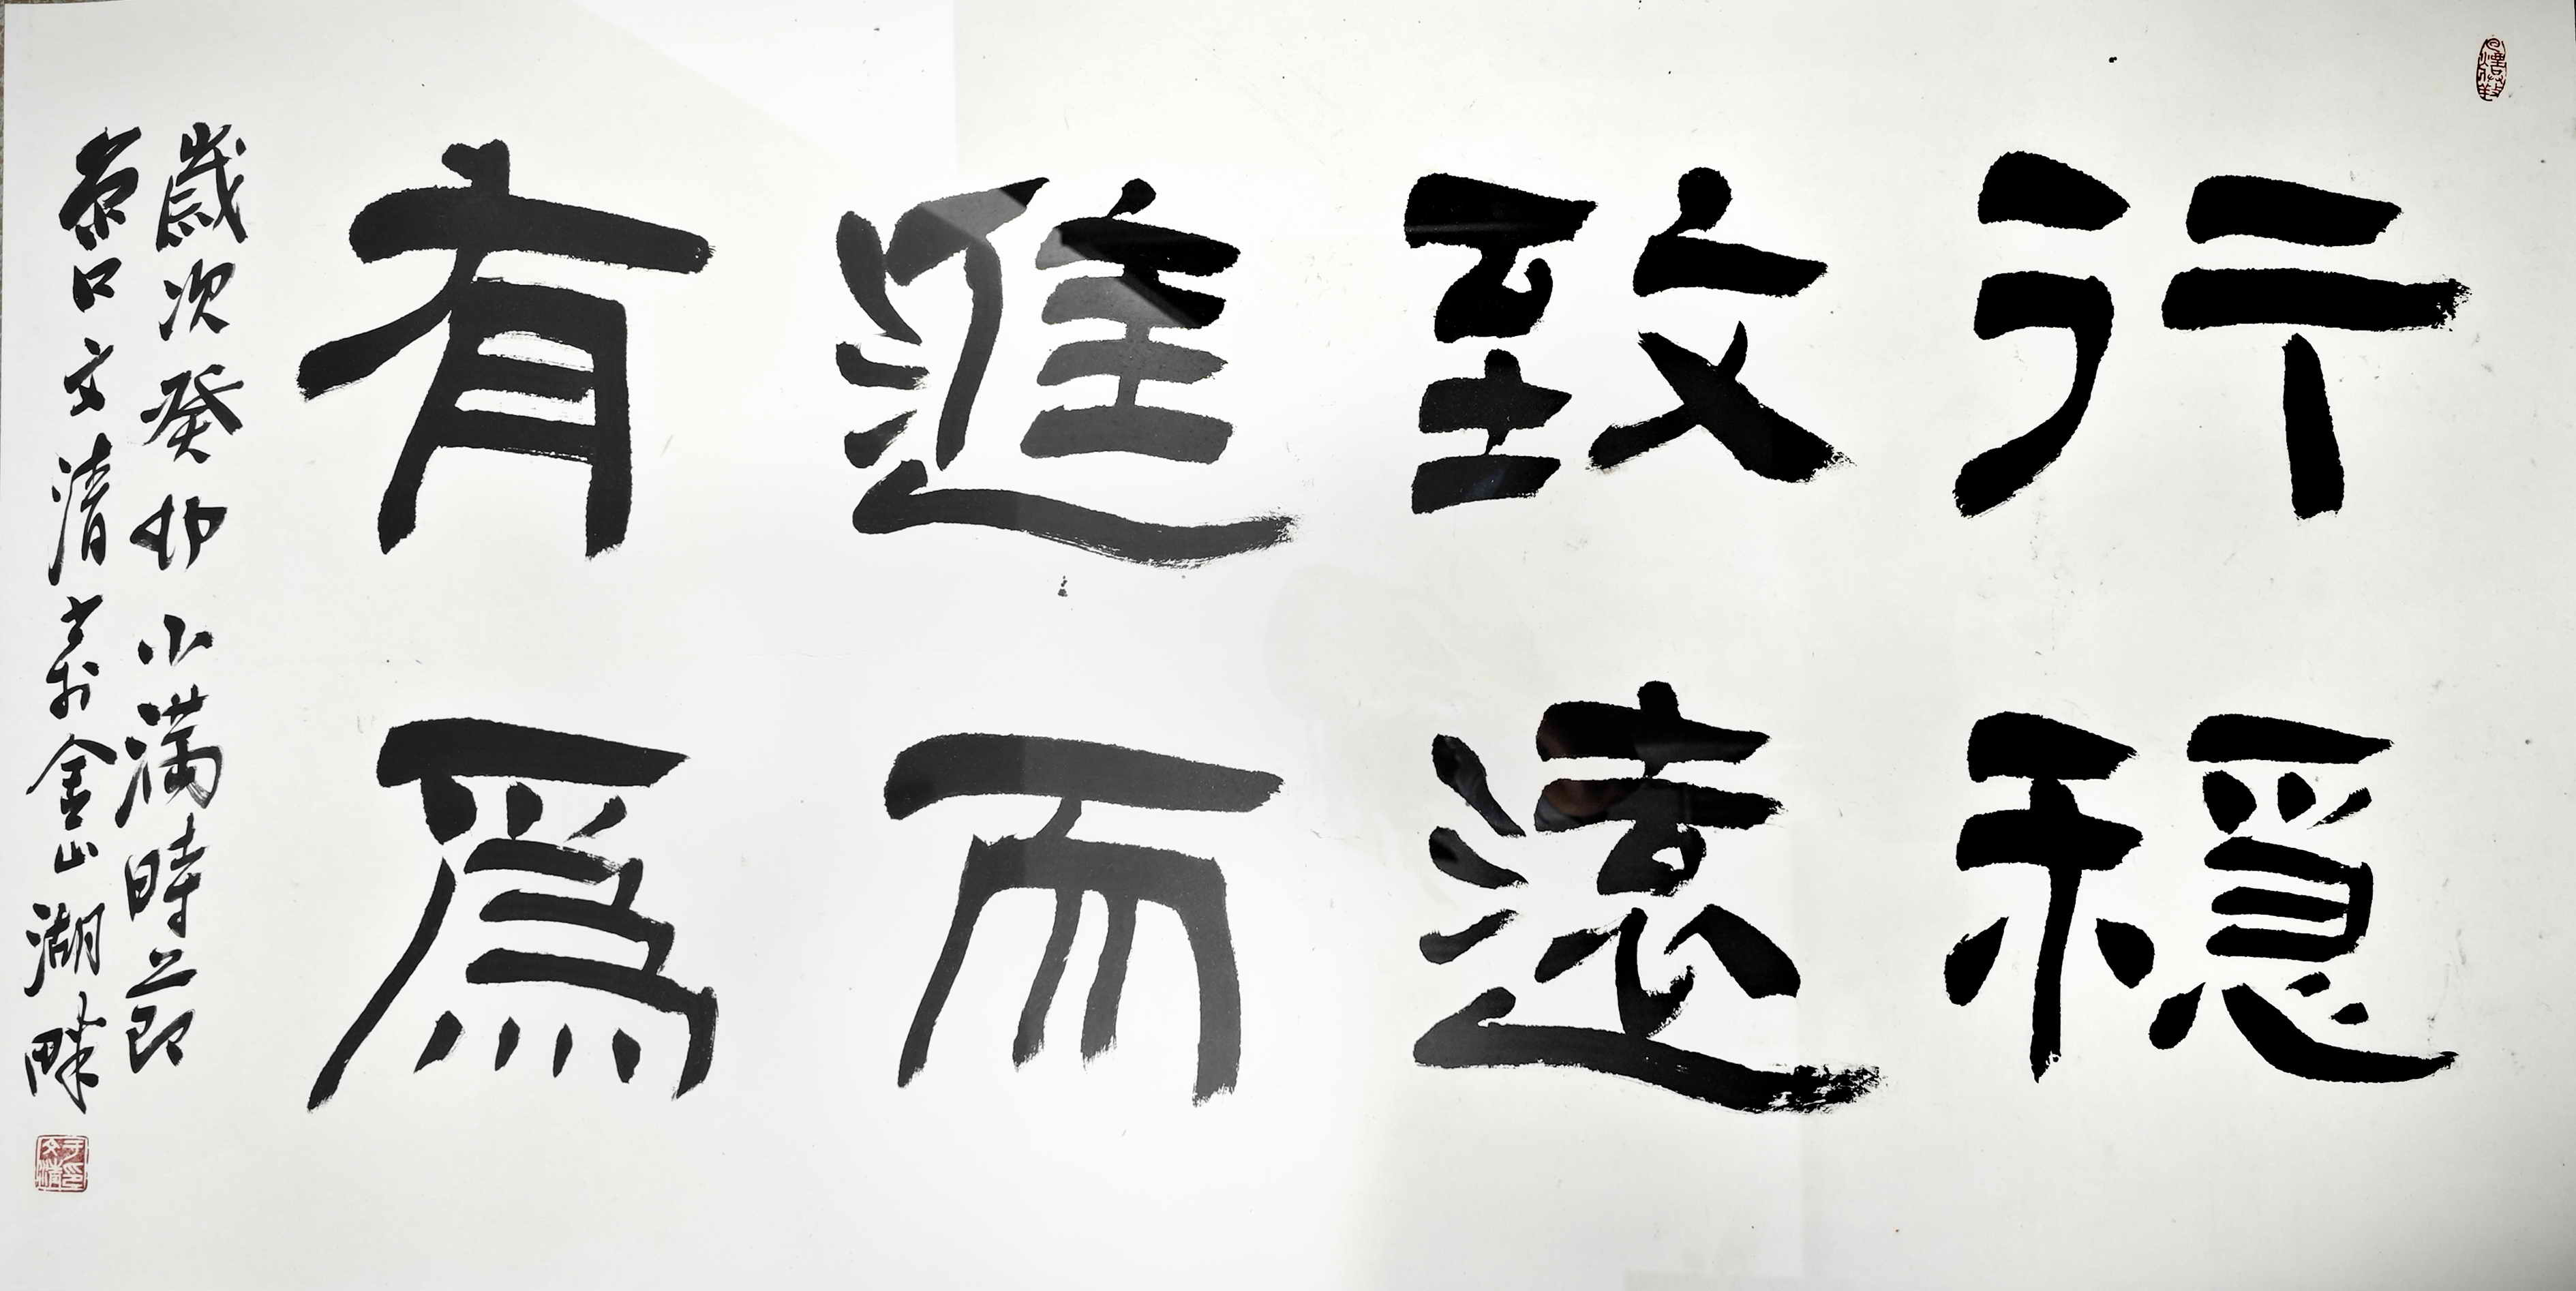 行穩
致遠
進而
有為
歲次癸卯小滿時節
京口文清書於金山湖畔